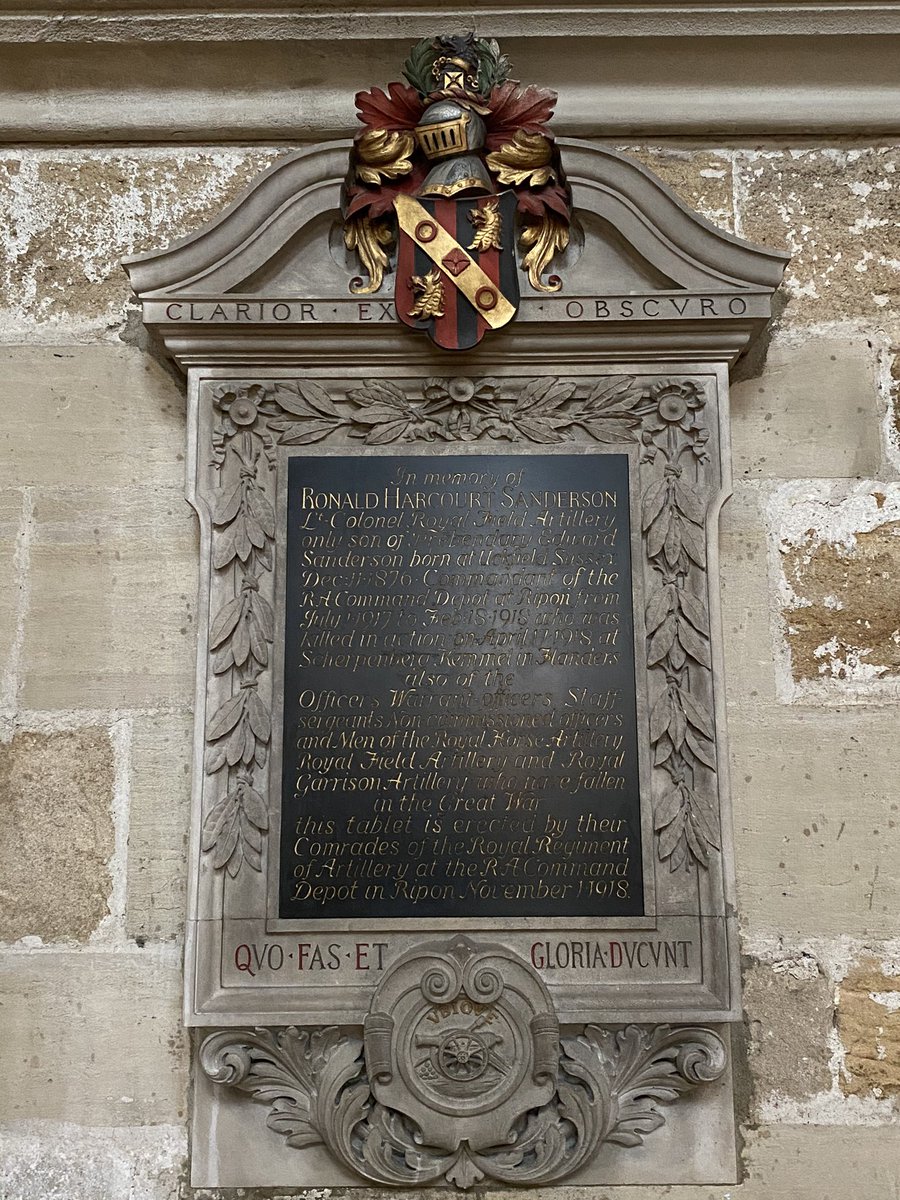 CLARIOR · EX · OBSCVRO
In memory of
RONALD HARCOURT SANDERSON
Lt-Colonel Royal Field Artillery
only son of Prebendary Edward
Sanderson born at Uckfield Sussex
Dec: 11·1876· Commandant of the
R·A Command Depot at Ripon from
July 1·1917 to Feb·18·1918 who was
killed in action on April 17·1918 at
Scherpenberg Kemmel in Flanders
also of the
Officers Warrant-officers Staff-
sergeants Non commissioned officers
and Men of the Royal Horse Artillery
Royal Field Artillery and Royal
Garrison Artillery who have fallen
in the Great War
this tablet is erected by their
Comrades of the Royal Regiment
of Artillery at the R·A Command
Depot in Ripon November 1·1918.
QVO·FAS·ET GLORIA·DVCVNT
VBIQVE